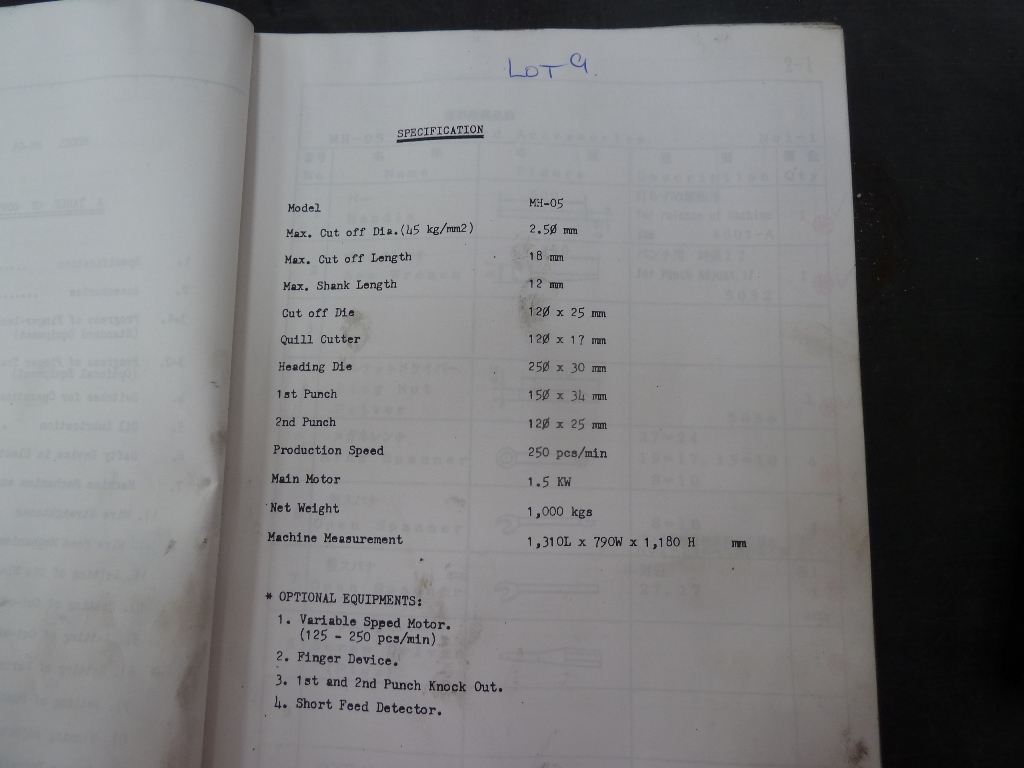 LOT 9.
SPECIFICATION
Model MH-05
Max. Cut off Dia.(45 kg/mm2) 2.5Ø mm
Max. Cut off Length 18 mm
Max. Shank Length 12 mm
Cut off Die 12Ø x 25 mm
Quill Cutter 12Ø x 17 mm
Heading Die 25Ø x 30 mm
1st Punch 15Ø x 34 mm
2nd Punch 12Ø x 25 mm
Production Speed 250 pcs/min
Main Motor 1.5 KW
Net Weight 1,000 kgs
Machine Measurement 1,310L x 790W x 1,180 H mm
* OPTIONAL EQUIPMENTS:
1. Variable Speed Motor.
(125 - 250 pcs/min)
2. Finger Device.
3. 1st and 2nd Punch Knock Out.
4. Short Feed Detector.